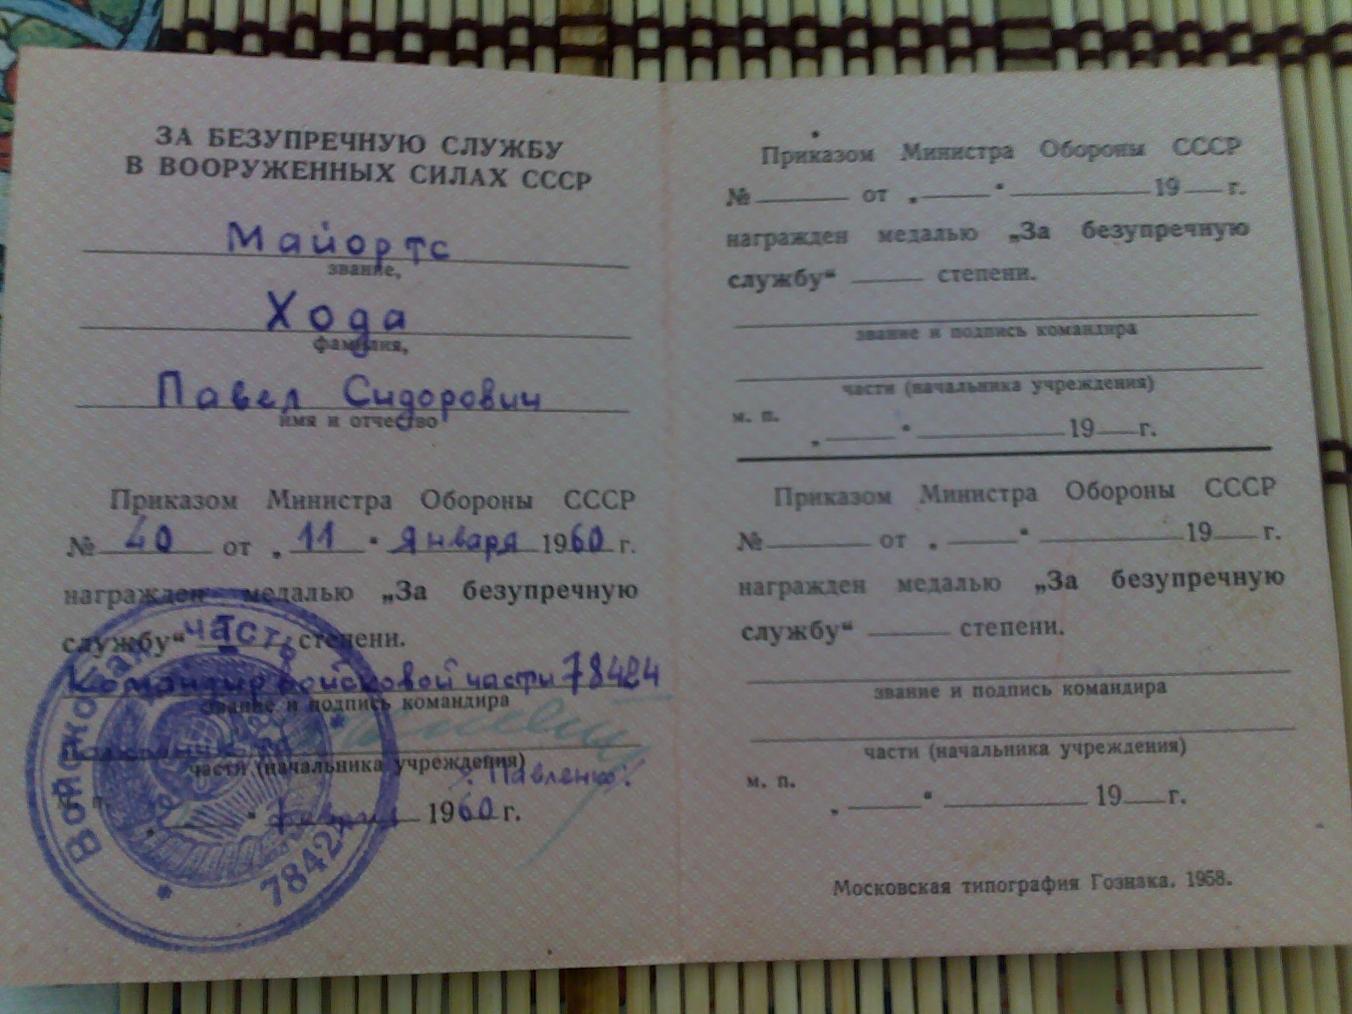 ЗА БЕЗУПРЕЧНУЮ СЛУЖБУ
В ВООРУЖЕННЫХ СИЛАХ СССР
Майор тс
звание,
Хода
фамилия,
Павел Сидорович
имя и отчество
Приказом Министра Обороны СССР
№ 40 от „ 11 " января 1960 г.
награжден медалью „За безупречную
службу“ I степени.
Командир войсковой части 78424
звание и подпись командира
части (начальника учреждения)
: Павленко :
м. п.
„ " февраля 1960 г.
Войсковая часть
7842
Приказом Министра Обороны СССР
№ от „ " 19 г.
награжден медалью „За безупречную
службу“ степени.
звание и подпись командира
части (начальника учреждения)
м. п.
„ " 19 г.
Приказом Министра Обороны СССР
№ от „ " 19 г.
награжден медалью „За безупречную
службу“ степени.
звание и подпись командира
части (начальника учреждения)
м. п.
„ " 19 г.
Московская типография Гознака. 1958.